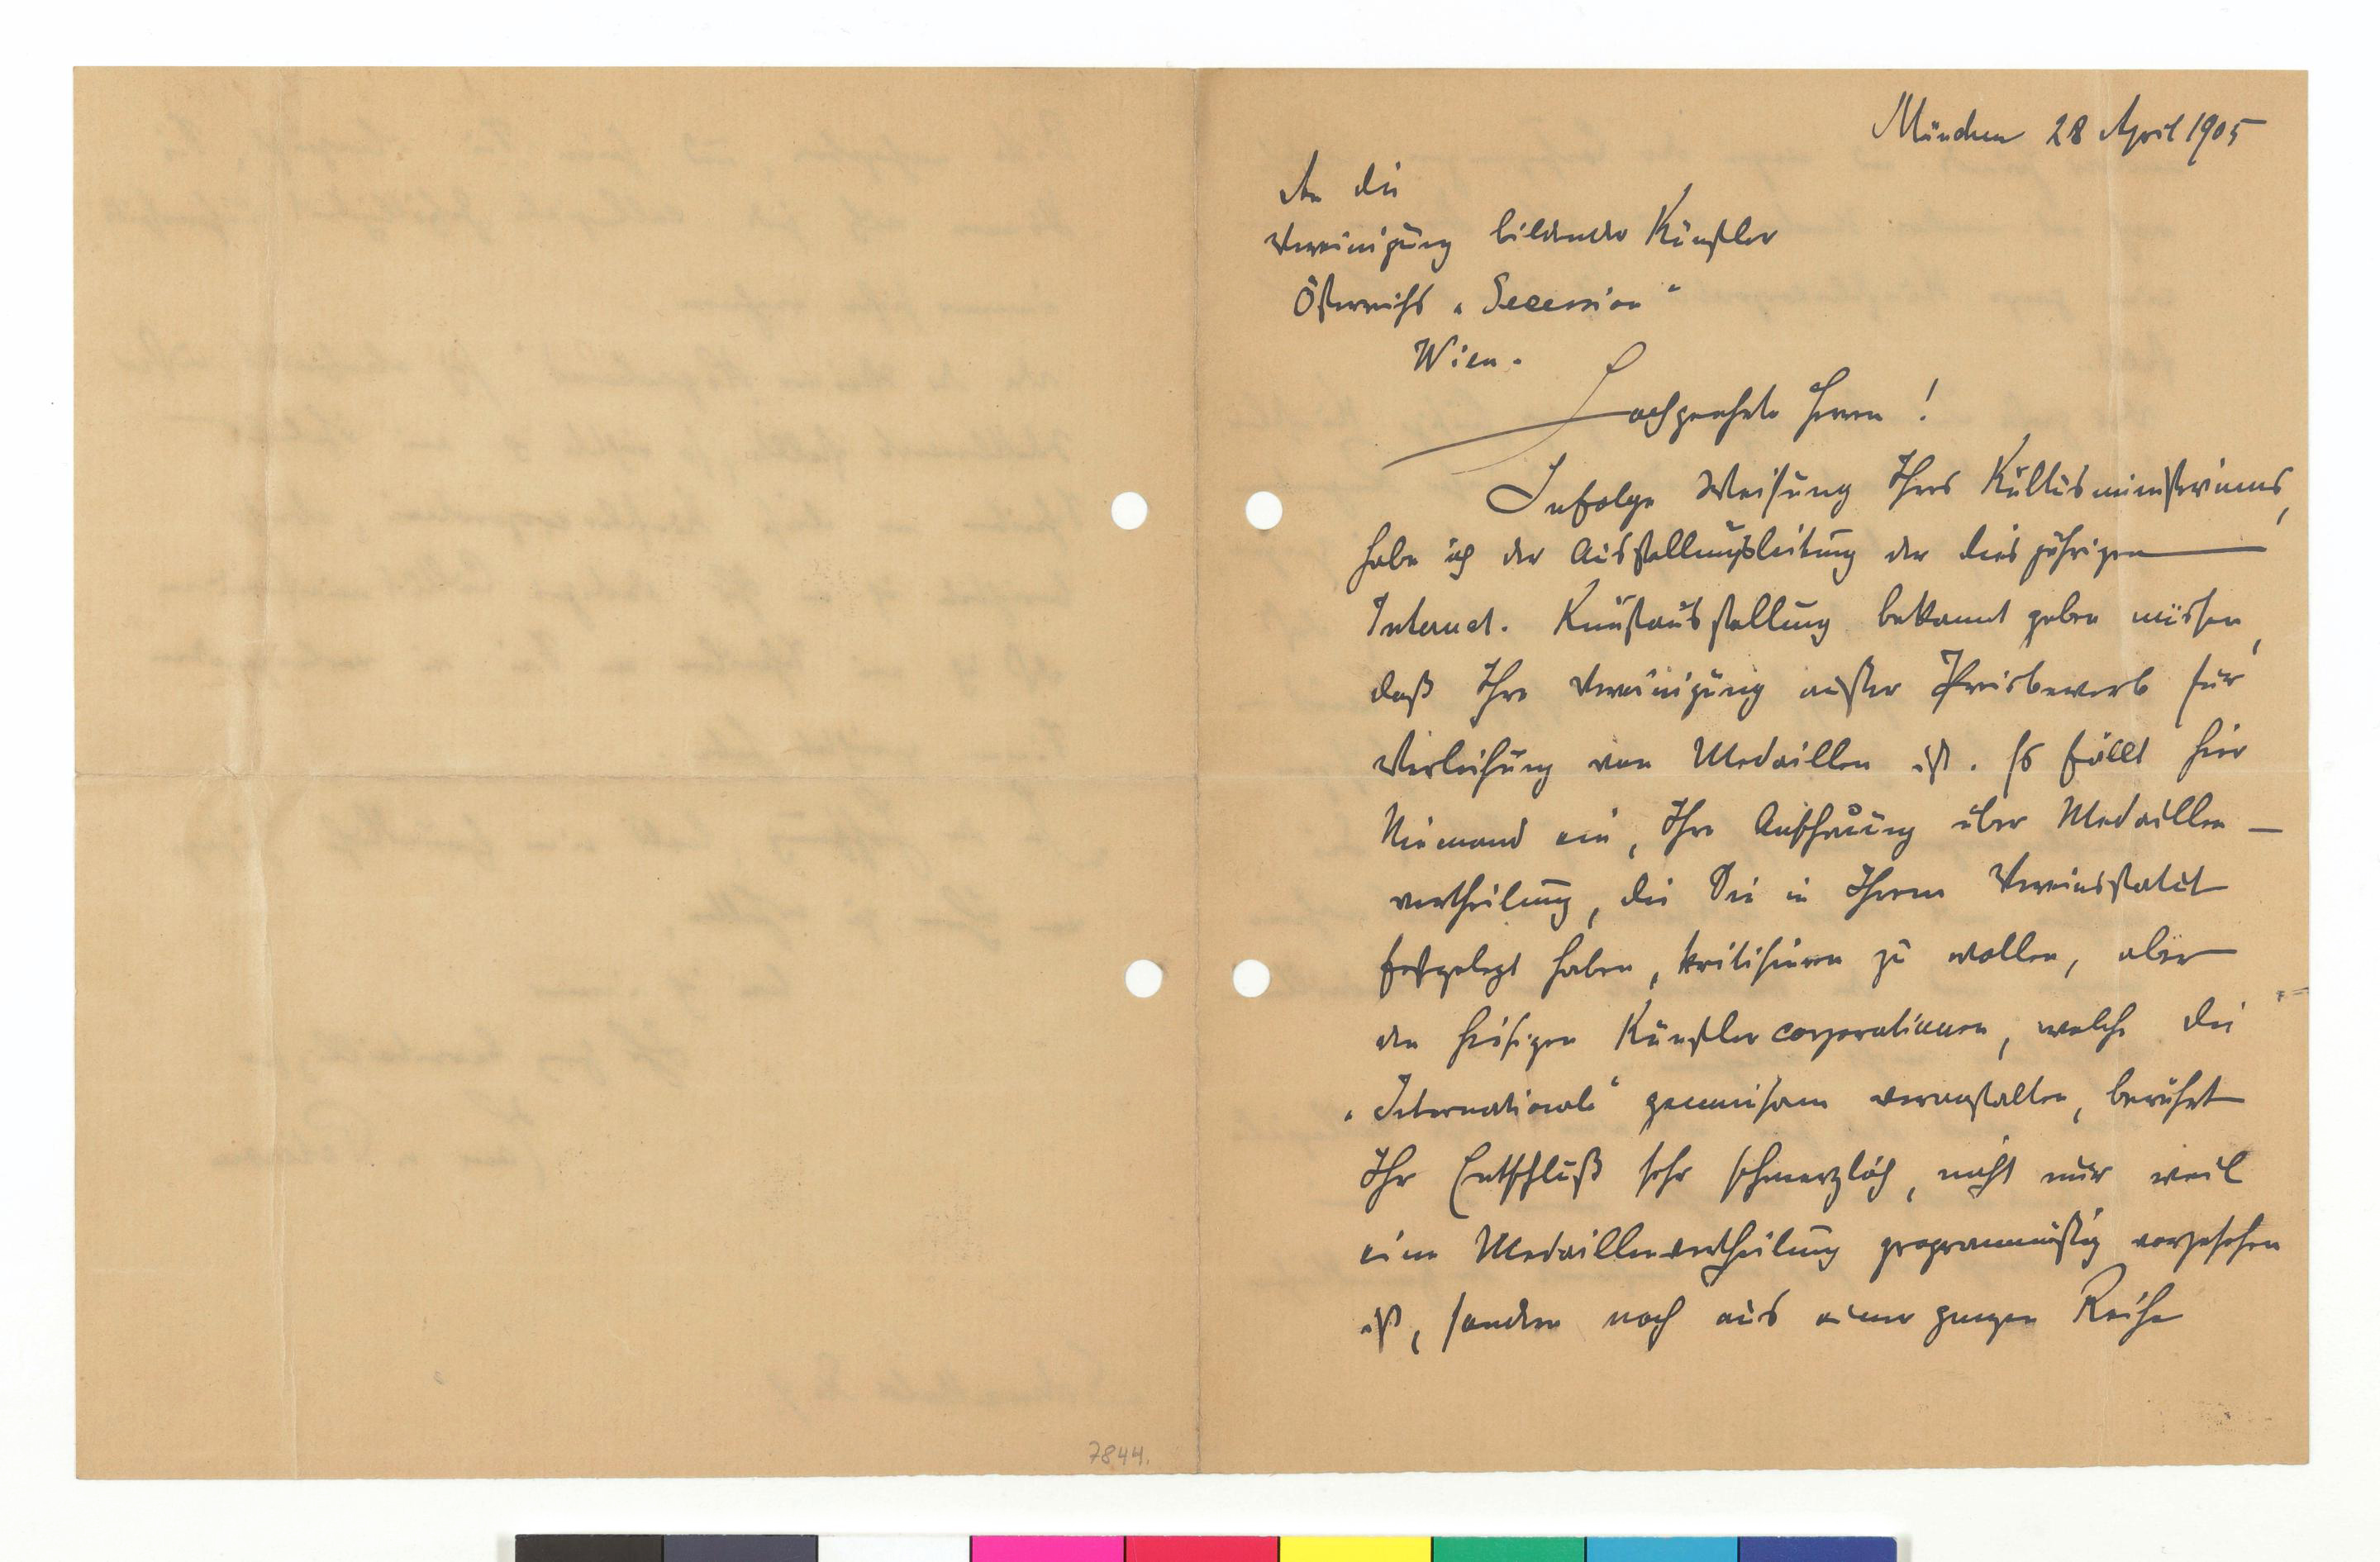 München 28 April 1905
An die
Vereinigung bildender Künstler
Österreichs „Secession“
Wien.
Hochgeehrte Herren!
Infolge Weisung Ihres Kultusministeriums,
habe ich der Ausstellungsleitung der diesjährigen
Internat. Kunstausstellung bekannt geben müssen,
daß Ihre Vereinigung außer Preisbewerb für
Verleihung von Medaillen ist. Es fällt hier
Niemand ein, Ihre Anschauung über Medaillen-
vertheilung, die Sie in Ihrem Vereinsstatut
festgelegt haben, kritisieren zu wollen, aber
den hiesigen Künstlercorporationen, welche die
„Internationale“ gemeinsam veranstalten, berührt
Ihr Entschluß sehr schmerzlich, nicht nur weil
eine Medaillenvertheilung programmäßig vorgesehen
ist, sondern noch aus einer ganzen Reihe
7844.